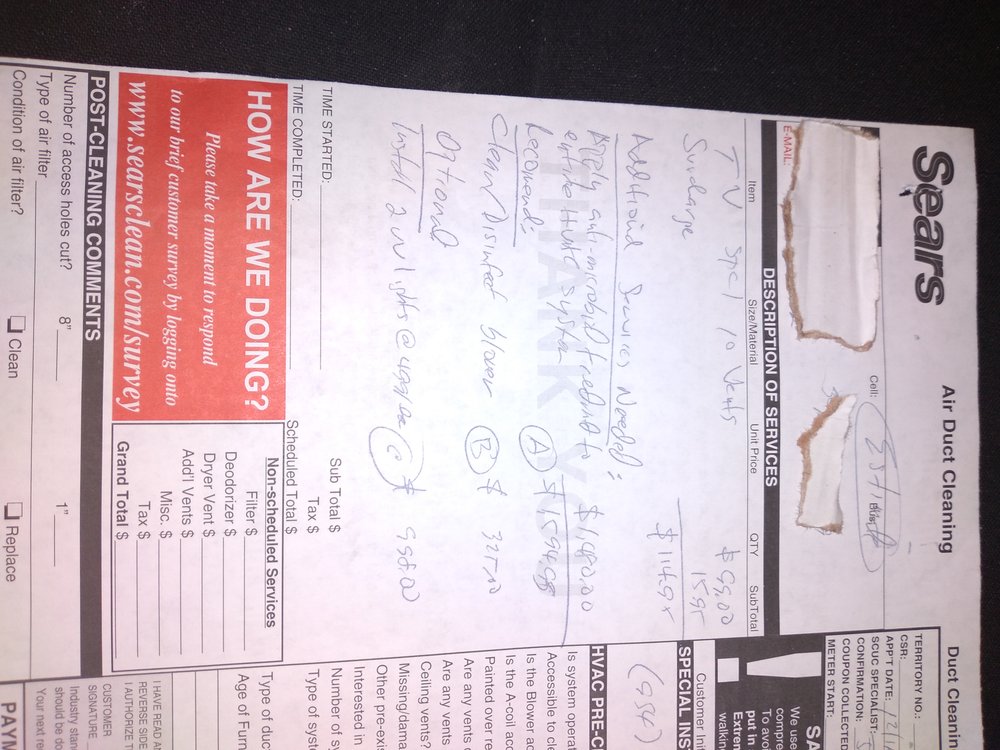 Sears
Air Duct Cleaning
Cell:
Estimate
E-MAIL:
DESCRIPTION OF SERVICES
Item Size/Material Unit Price QTY SubTotal
TV Spcl 10 Vents $ 99.00
Surcharge 15.95
$ 114.95
Additional Services Needed:
Apply anti-microbial treatment to $1,480.00
entire HVAC system
(A) $1594.95
Recomend:
Clean/Disinfect blower (B) $ 325.00
Optional
Install 2 uv lights @ (C) $ 998.00
THANK YOU
TIME STARTED:
TIME COMPLETED:
Sub Total $
Tax $
Scheduled Total $
HOW ARE WE DOING?
Please take a moment to respond
to our brief customer survey by logging onto
www.searsclean.com/survey
Non-scheduled Services
Filter $
Deodorizer $
Dryer Vent $
Add'l Vents $
Misc. $
Tax $
Grand Total $
POST-CLEANING COMMENTS
Number of access holes cut? 8" 1"
Type of air filter
Condition of air filter? Clean Replace
Duct Cleanin
TERRITORY NO.:
CSR:
APP'T DATE:
SCUC SPECIALIST:
CONFIRMATION:
COUPON COLLECTE
METER START:
SA
We use
compre
To avo
put in
Extrem
walkin
Customer Ini
SPECIAL INS
(954)
HVAC PRE-C
Is system operat
Accessible to cle
Is the Blower ac
Is the A-coil acc
Painted over re
Are any vents c
Are any vents
Ceiling vents?
Missing/dama
Other pre-exis
Interested in
Number of sy
Type of syste
Type of duc
Age of Furn
I HAVE READ AN
REVERSE SIDE
I AUTHORIZE T
CUSTOMER
SIGNATURE
Industry stan
should be do
Your next re
PAYM